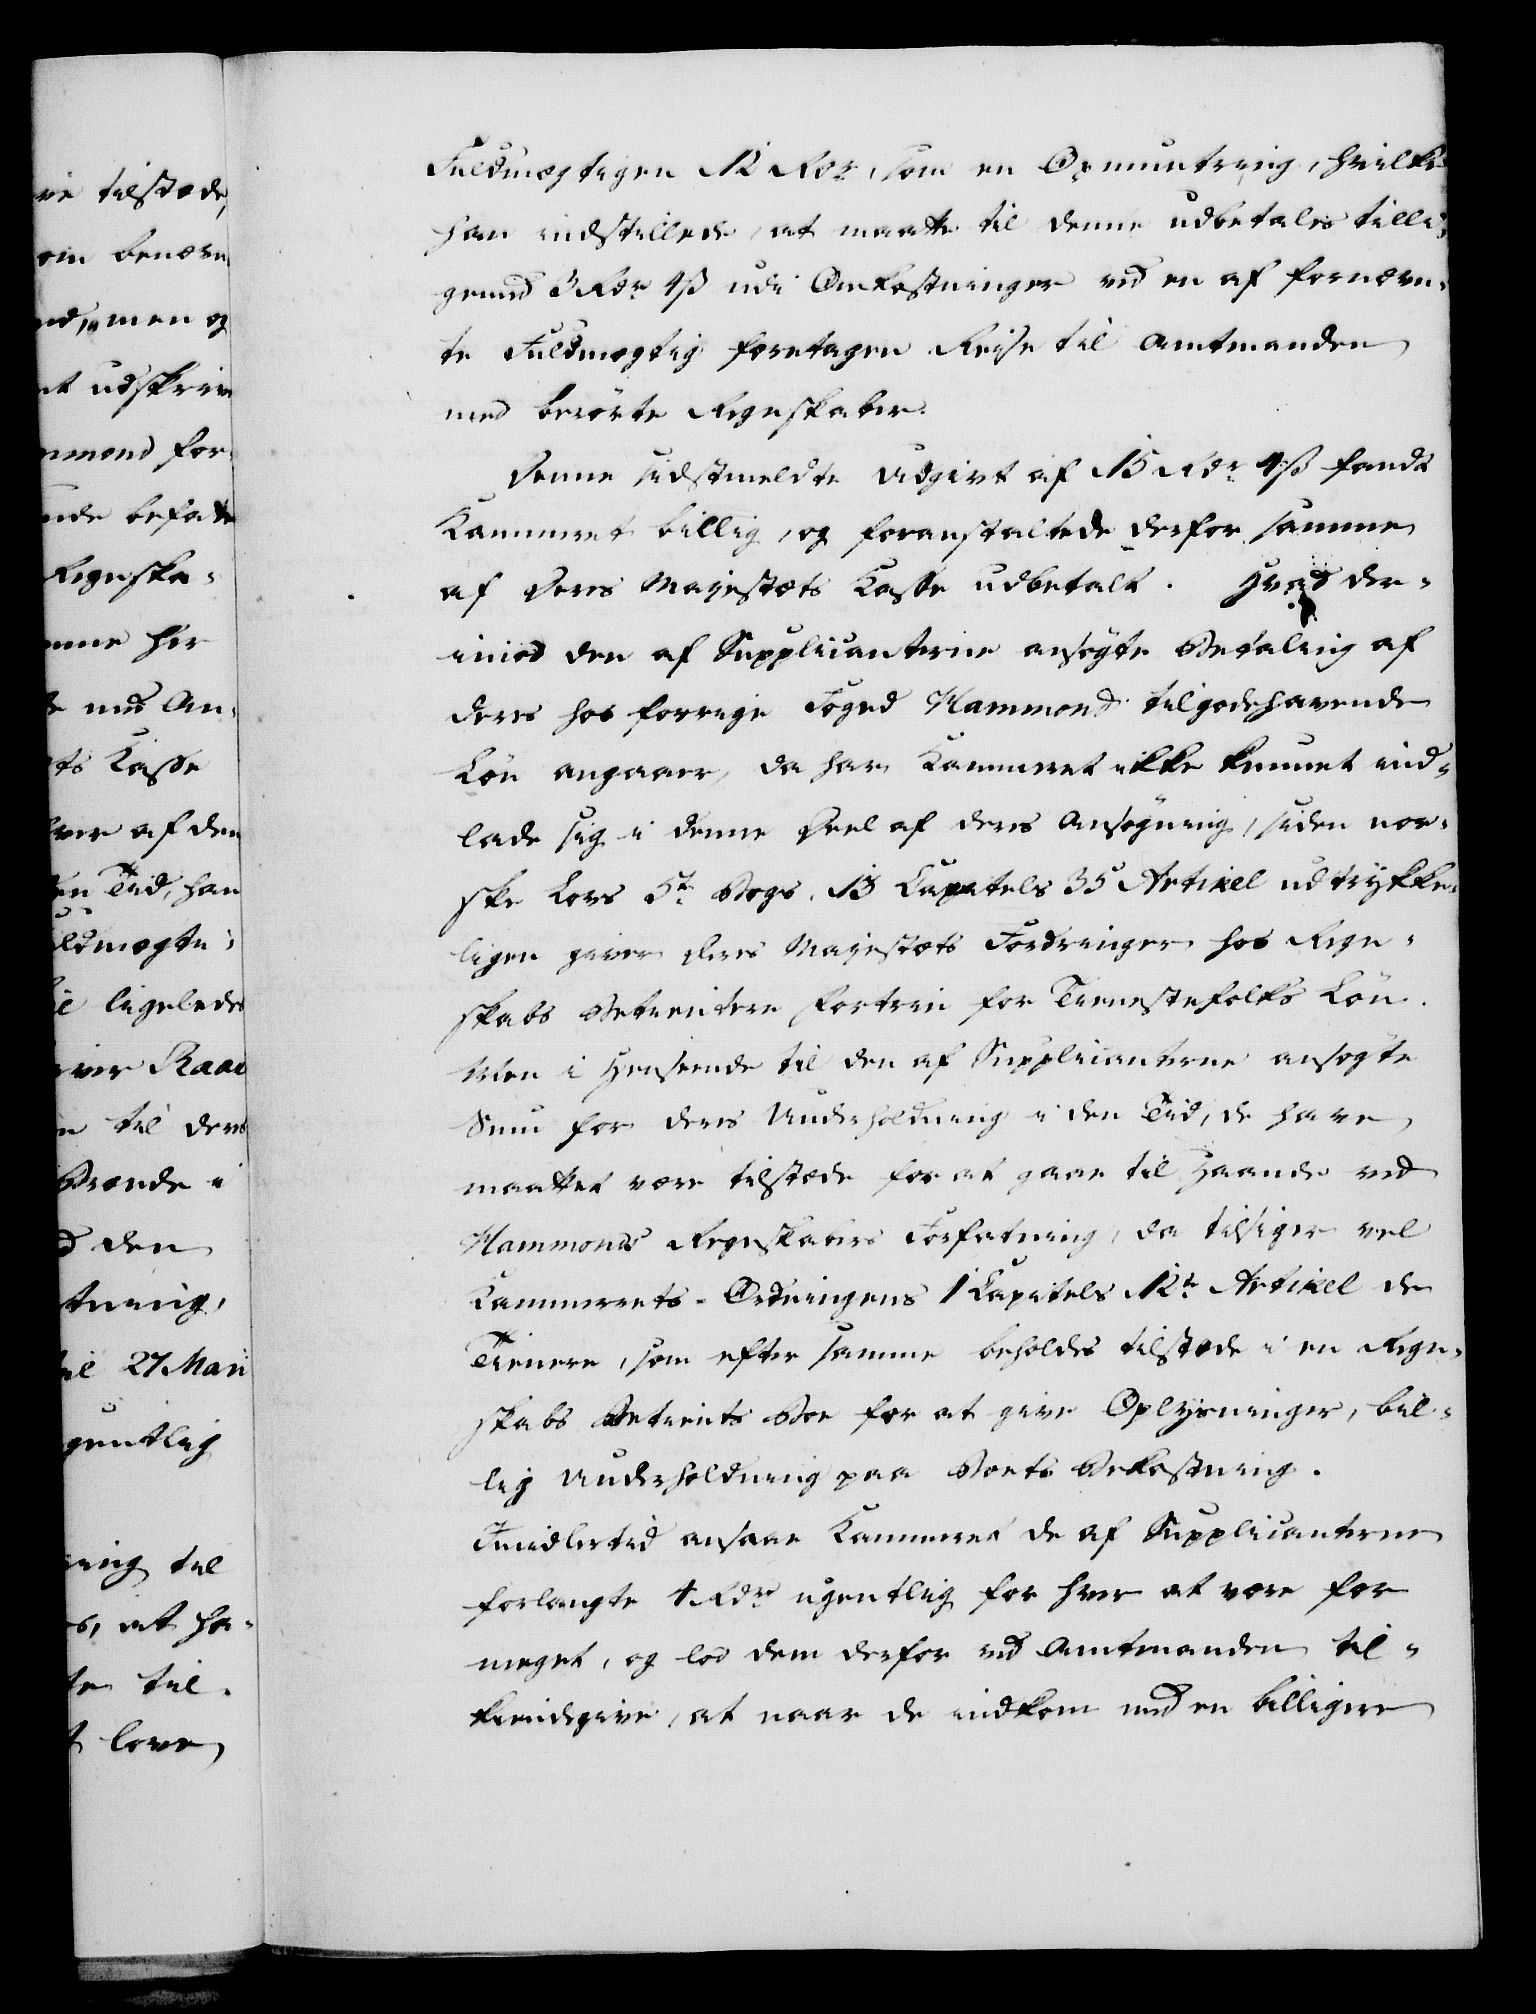 Fuldmægtigen 12 Rdr, som en Opmuntring, hvilke
han indstillede, at maatte til denne udbetales tilli-
gemed 3 Rdr 4 ß udi Omkostninger ved en af fornævn-
te Fuldmægtig foretagen Reise til Amtmanden
med berørte Regnskaber.
Denne sidstmeldte Udgivt af 15 Rdr 4 ß fandt
Kammeret billig, og foranstaltede derfor samme
af Deres Majestæts Kasse udbetalt. Hvad der-
imod den af Supplicanterne ansøgte Betaling af
deres hos forrige Foged Hammond tilgodehavende
Løn angaaer, da har Kammeret ikke kunnet ind-
lade sig i denne Deel af deres Ansøgning, siden nor-
ske Lovs 5te Bogs, 13 Capitels 35 Artikel udtrykke-
ligen giver Deres Majestæts Fordringer hos Regn-
skabs Betientere Fortrin for Tienestefolks Løn.
Men i Henseende til den af Supplicanterne ansøgte
Sum for deres Underholdning i den Tid, de have
maattet være tilstæde for at gaae til Haande ved
Hammonds Regnskabers Forfatning, da tilsiger vel
Kammerets-Ordningens 1 Capitels 12te Artikel de
Tienere, som efter samme beholdes tilstæde i en Regn-
skabs Betients Boe for at give Oplysninger, bil-
lig Underholdning paa Boets Bekostning.
Imidlertid ansaae Kammeret de af Supplicanterne
forlangte 4 Rdr ugentlig for hver at være for
meget, og lod dem derfor ved Amtmanden til-
kiendegive, at naar de indkom med en billigere